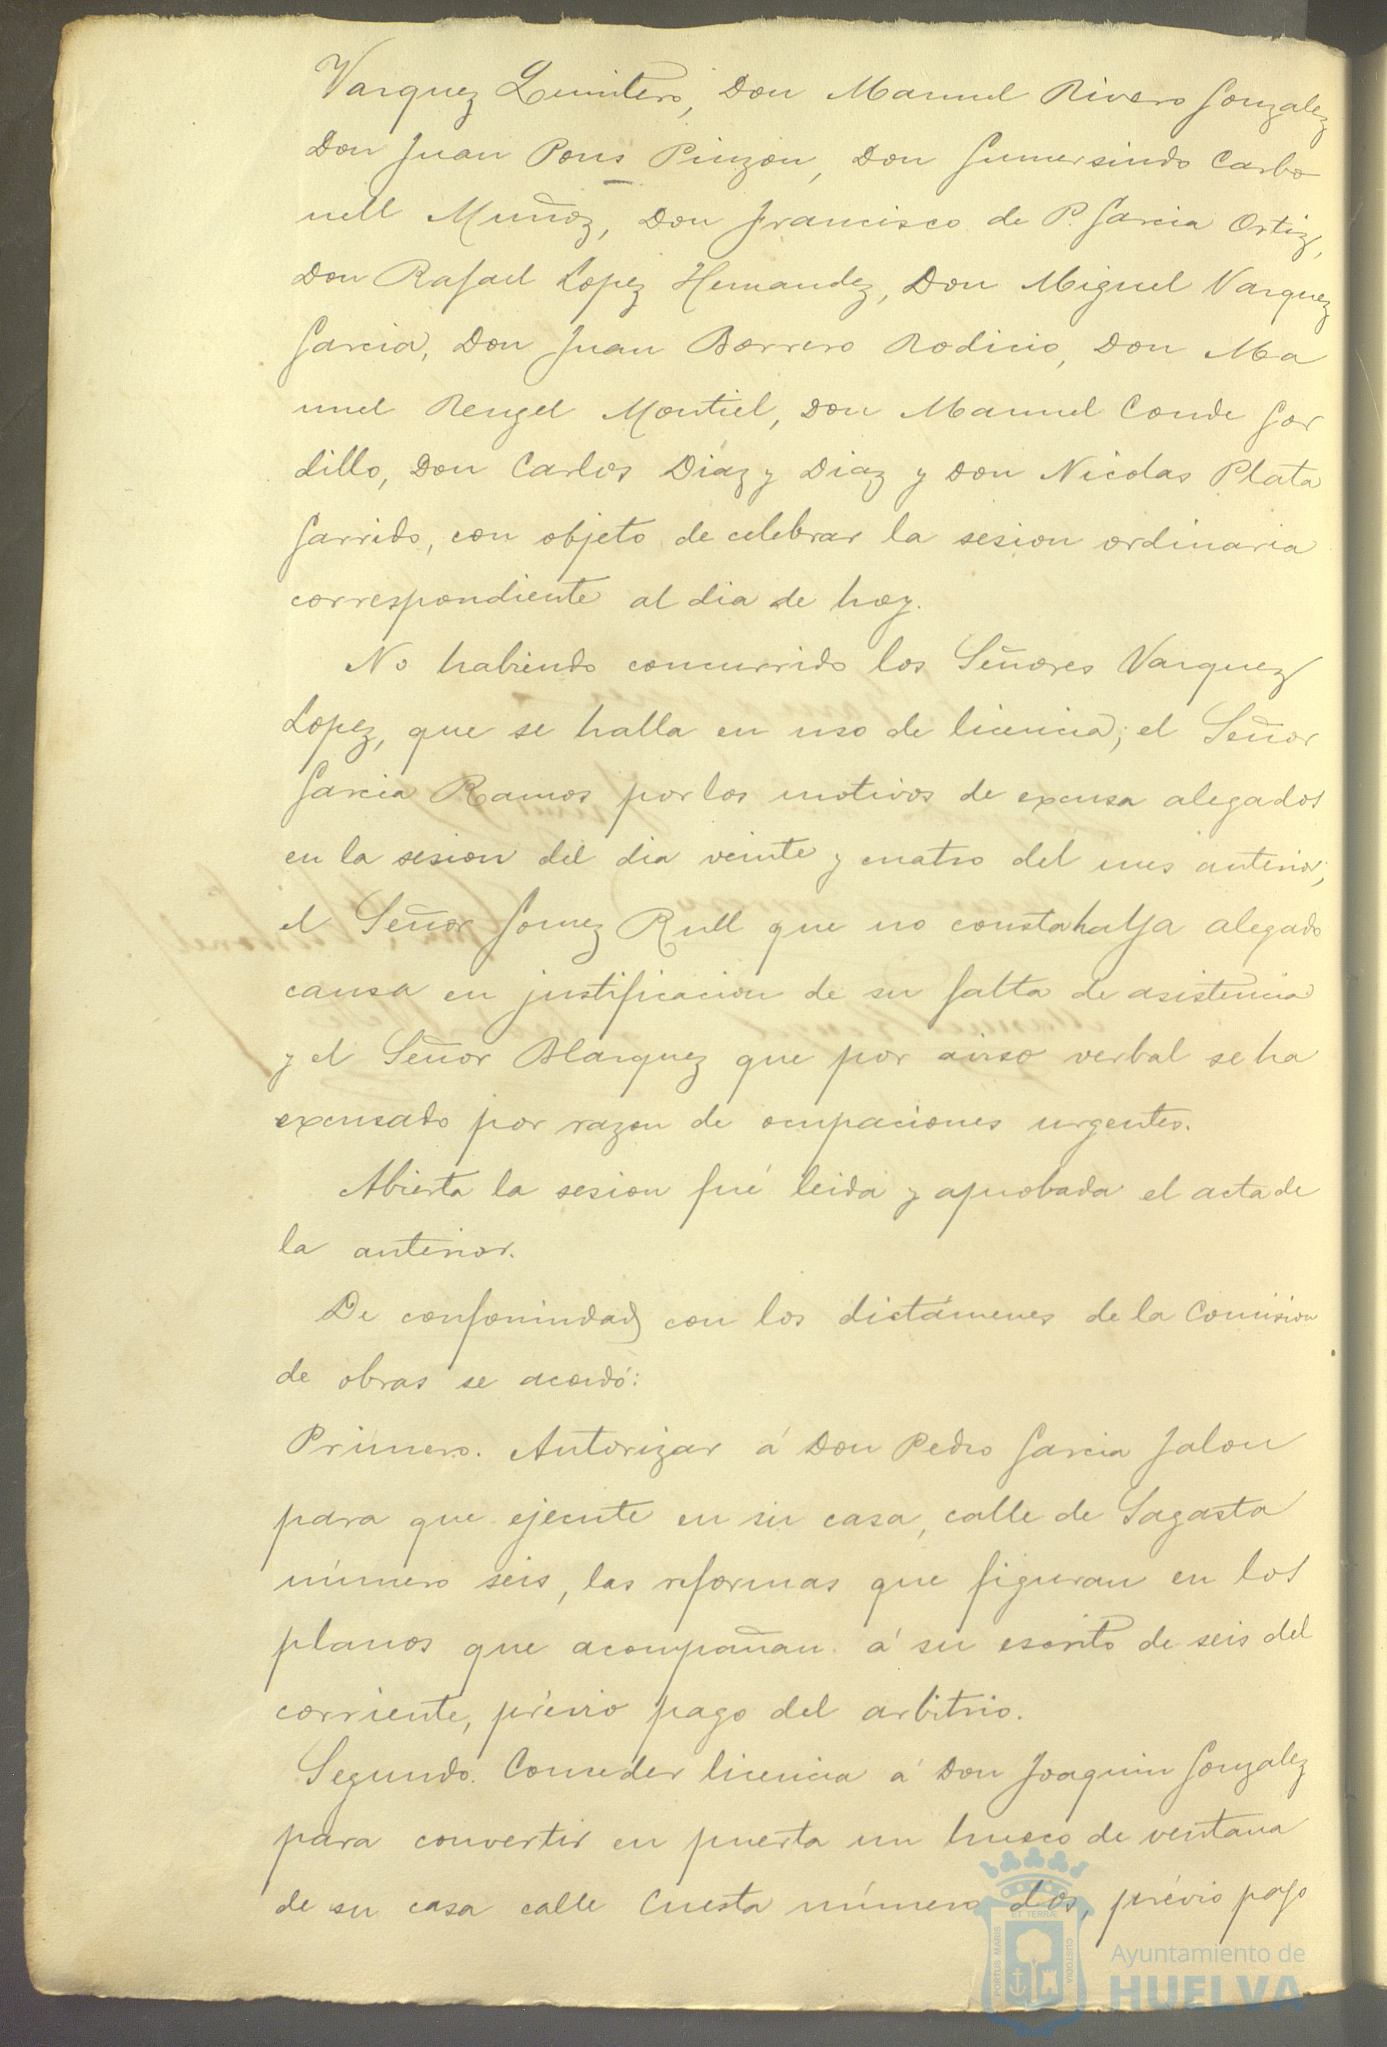 Vazquez Quintero, Don Manuel Rivero Gonzalez
Don Juan Pons Pinzon, Don Gumersindo Carbo
nell Muñoz, Don Francisco de P. Garcia Ortiz,
Don Rafael Lopez Hernandez, Don Miguel Vazquez
Garcia, Don Juan Borrero Rodicio, Don Ma
nuel Rengel Montiel, Don Manuel Conde Gor
dillo, Don Carlos Diaz y Diaz y Don Nicolas Plata
Garrido, con objeto de celebrar la sesion ordinaria
correspondiente al dia de hoy.
No habiendo concurrido los Señores Vazquez
Lopez, que se halla en uso de licencia; el Señor
Garcia Ramos por los motivos de excusa alegados
en la sesion del dia veinte y cuatro del mes anterior;
el Señor Gomez Rull que no consta haya alegado
causa en justificacion de su falta de asistencia
y el Señor Blazquez que por aviso verbal se ha
excusado por razon de ocupaciones urgentes.
Abierta la sesion fué leida y aprobada el acta de
la anterior.
De conformidad con los dictámenes de la Comision
de obras se acordó:
Primero. Autorizar á Don Pedro Garcia Jalon
para que ejecute en su casa, calle de Sagasta
número seis, las reformas que figuran en los
planos que acompañan á su escrito de seis del
corriente, prévio pago del arbitrio.
Segundo. Conceder licencia á Don Joaquin Gonzalez
para convertir en puerta un hueco de ventana
de su casa calle Cuesta número dos, prévio pago
PORTUS MARIS
ET TERRÆ
CUSTODIA
Ayuntamiento de
HUELVA